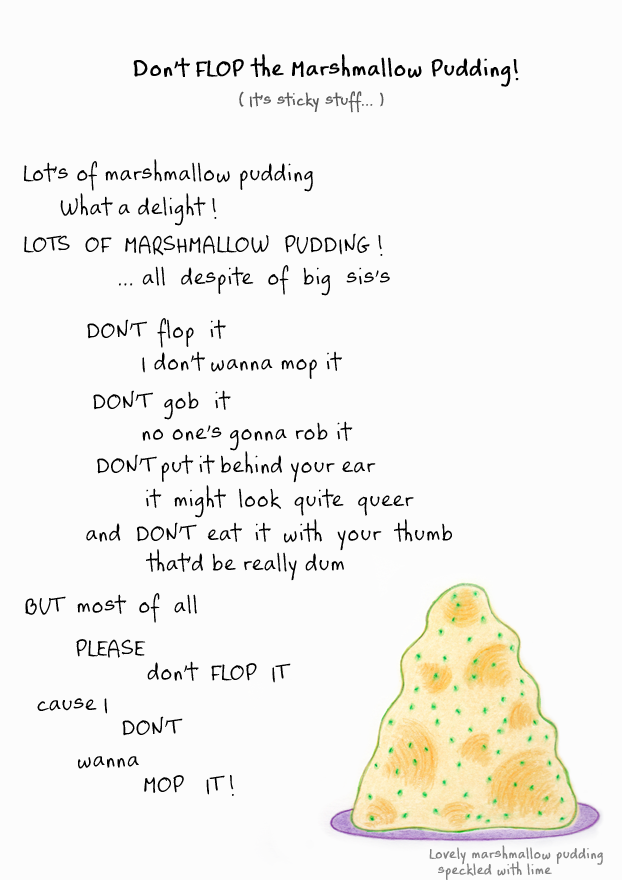 Don't FLOP the Marshmallow Pudding!
( it's sticky stuff... )
Lot's of marshmallow pudding
What a delight!
LOTS OF MARSHMALLOW PUDDING!
... all despite of big sis's
DON'T flop it
I don't wanna mop it
DON'T gob it
no one's gonna rob it
DON'T put it behind your ear
it might look quite queer
and DON'T eat it with your thumb
that'd be really dum
BUT most of all
PLEASE
don't FLOP IT
cause I
DON'T
wanna
MOP IT!
Lovely marshmallow pudding
speckled with lime